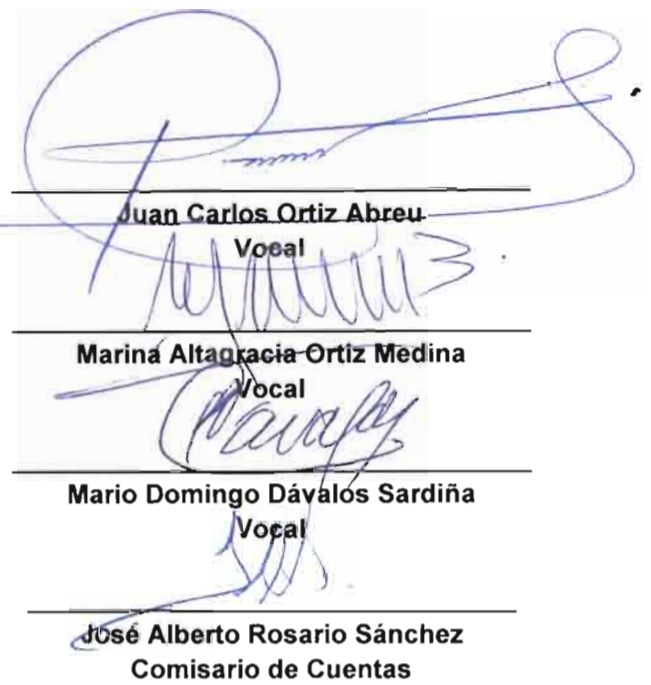 Juan Carlos Ortiz Abreu
Vocal
Marina Altagracia Ortiz Medina
Vocal
Mario Domingo Dávalos Sardiña
Vocal
José Alberto Rosario Sánchez
Comisario de Cuentas